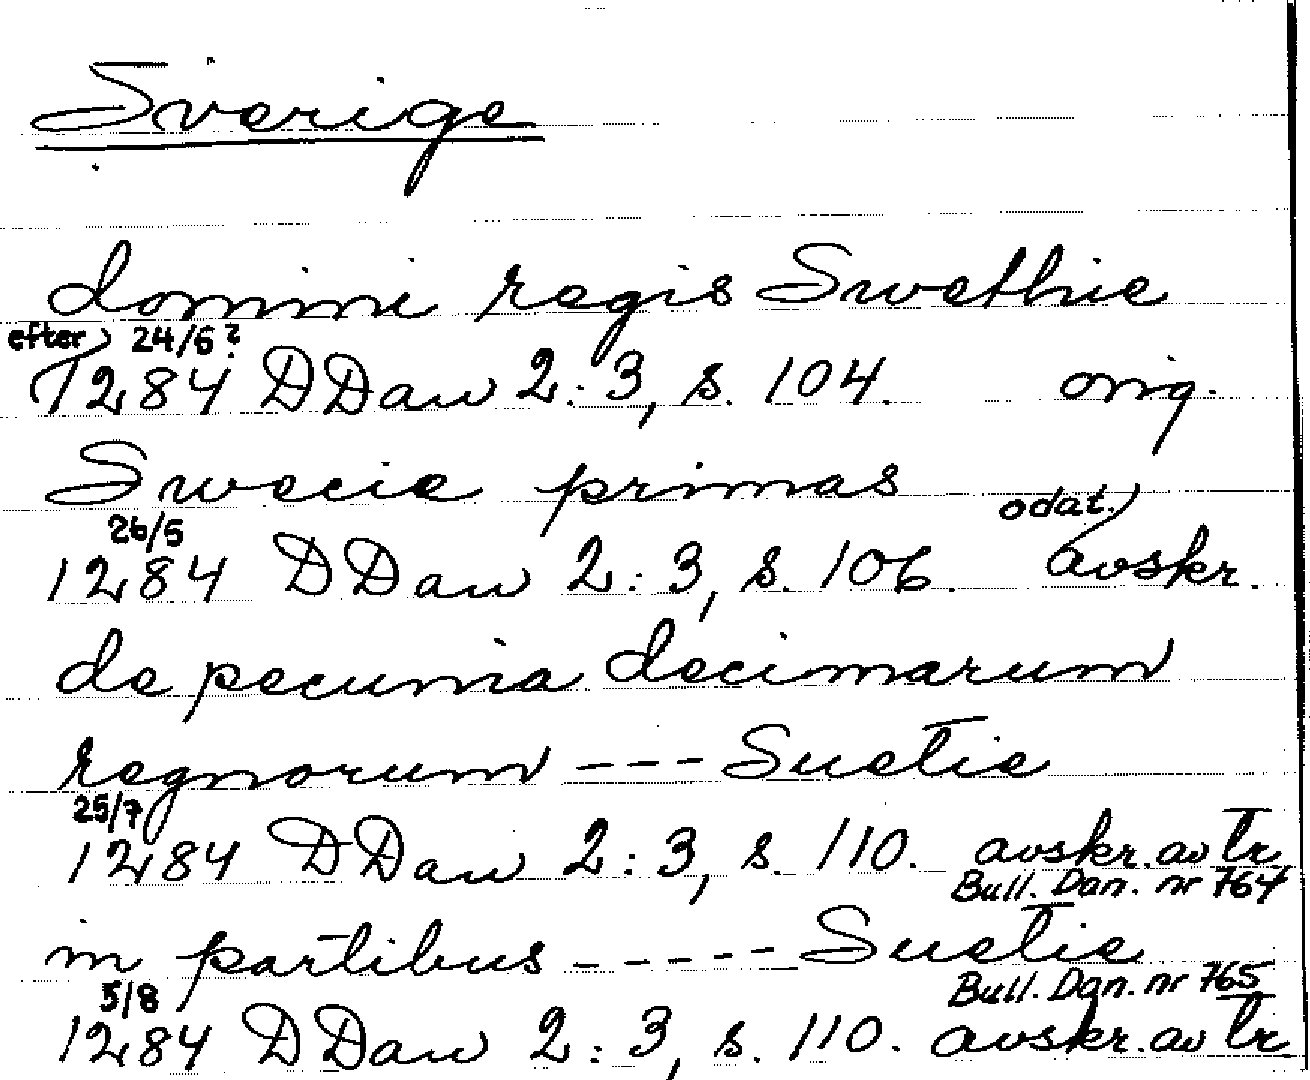 Sverige
domini regis Swethie
efter 24/6?
1284 DDan 2:3, s. 104. orig.
Swecie primas
26/5 odat.
1284 DDan 2:3, s. 106. avskr.
de pecunia decimarum
regnorum --- Suetie
25/7
1284 DDan 2:3, s. 110. avskr. av tr
Bull. Dan. nr 764
in partibus ----- Suetie
5/8 Bull. Dan. nr 765
1284 DDan 2:3, s. 110. avskr. av tr